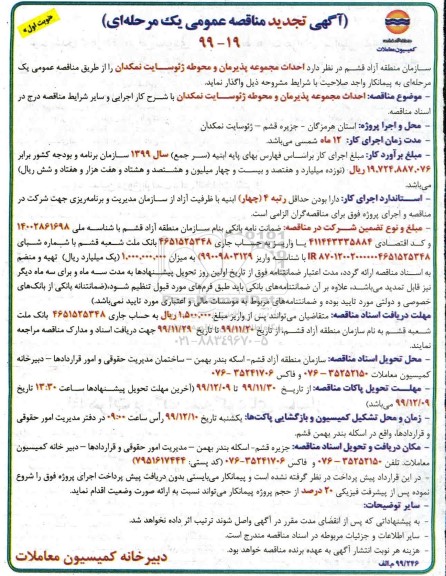 (آگهی تجدید مناقصه عمومی یک مرحله‌ای)
۹۹-۱۹
نوبت اول
کمیسیون معاملات
سازمان منطقه آزاد قشم در نظر دارد احداث مجموعه پذیرمان و محوطه ژئوسایت نمکدان را از طریق مناقصه عمومی یک
مرحله‌ای به پیمانکار واجد صلاحیت با شرایط مشروحه ذیل واگذار نماید.
- موضوع مناقصه: احداث مجموعه پذیرمان و محوطه ژئوسایت نمکدان با شرح کار اجرایی و سایر شرایط مناقصه درج در
اسناد مناقصه.
- محل و اجرا پروژه: استان هرمزگان - جزیره قشم - ژئوسایت نمکدان
- مدت زمان اجرای کار: ۱۲ ماه شمسی می‌باشد.
- مبلغ برآورد کار: مبلغ اجرای کار براساس فهارس بهای پایه ابنیه (سر جمع) سال ۱۳۹۹ سازمان برنامه و بودجه کشور برابر
۱۹.۷۲۴.۸۸۷.۰۷۶ ریال (نوزده میلیارد و هفتصد و بیست و چهار میلیون و هشتصد و هشتاد و هفت هزار و هفتاد و شش ریال)
می‌باشد.
- استاندارد اجرای کار: دارا بودن حداقل رتبه ۴ (چهار) ابنیه با ظرفیت آزاد از سازمان مدیریت و برنامه‌ریزی جهت شرکت در
مناقصه و اجرای پروژه فوق برای مناقصه‌گران الزامی است.
- مبلغ و نوع تضمین شرکت در مناقصه: ضمانت نامه بانکی بنام سازمان منطقه آزاد قشم با شناسه ملی ۱۴۰۰۲۸۶۱۶۹۸
و کد اقتصادی ۴۱۱۴۴۳۳۳۵۸۸۴ یا واریز به حساب جاری ۴۶۵۱۵۲۵۳۴۸ بانک ملت شعبه قشم با شماره شبای
با شناسه واریز ۹۹۰۰۹۸۰۳۱۲۹ به میزان ۱.۰۰۰.۰۰۰.۰۰۰ (یک میلیارد ریال) تهیه و منضم
به اسناد مناقصه ارائه گردد، مدت اعتبار ضمانتنامه فوق از تاریخ اولین روز تحویل پیشنهادها به مدت سه ماه و برای سه ماه دیگر
نیز قابل تمدید می‌باشد، علاوه بر آن ضمانتنامه‌های بانکی باید طبق فرم‌های مورد قبول تنظیم شود.(ضمانتنامه بانکی از بانک‌های
خصوصی و دولتی مورد تایید بوده و ضمانتنامه‌های مربوط به موسسات مالی و اعتباری مورد تایید نمی‌باشد)
مهلت دریافت اسناد مناقصه: متقاضیان می‌توانند پس از واریز مبلغ ۱.۵۰۰.۰۰۰ ریال به حساب جاری ۴۶۵۱۵۲۵۳۴۸ بانک ملت
شعبه قشم به نام سازمان منطقه آزاد قشم، از تاریخ ۹۹/۱۱/۲۰ تا تاریخ ۹۹/۱۱/۲۹ جهت دریافت اسناد و مدارک مناقصه مراجعه
نمایند.
- محل تحویل اسناد مناقصه: سازمان منطقه آزاد قشم- اسکله بندر بهمن – ساختمان مدیریت حقوقی و امور قراردادها – دبیرخانه
کمیسیون معاملات ۳۵۲۵۲۱۵۰-۰۷۶ و فاکس ۳۵۲۴۱۷۰۶-۰۷۶
- مهلت تحویل پاکات مناقصه: از تاریخ ۹۹/۱۱/۳۰ تا ۹۹/۱۲/۰۹ (آخرین مهلت تحویل پیشنهادها ساعت ۱۳:۳۰ تاریخ
۹۹/۱۲/۰۹ می‌باشد)
- زمان و محل تشکیل کمیسیون و بازگشایی پاکت‌ها: یکشنبه تاریخ ۹۹/۱۲/۱۰ رأس ساعت ۰۹:۰۰ در دفتر مدیریت امور حقوقی
و قراردادها، واقع در اسکله بندر بهمن قشم.
- مکان دریافت و تحویل اسناد مناقصه: جزیره قشم- اسکله بندر بهمن – مدیریت حقوقی و امور قراردادها – دبیر خانه کمیسیون
معاملات. تلفن ۳۵۲۵۲۱۵۰-۰۷۶ و فاکس ۳۵۲۴۱۷۰۶-۰۷۶ (کد پستی: ۷۹۵۱۶۱۷۴۴۴)
- در این قرارداد پیش پرداخت در نظر گرفته نشده است و پیمانکار می‌بایستی بدون دریافت پیش پرداخت اجرای پروژه فوق را شروع
نموده پس از پیشرفت فیزیکی ۲۰ درصد از حجم پروژه پیمانکار می‌تواند نسبت به ارائه صورت وضعیت اقدام نماید.
- سایر توضیحات:
- به پیشنهاداتی که پس از انقضای مدت مقرر در آگهی واصل شوند ترتیب اثر داده نخواهد شد.
- سایر اطلاعات و جزئیات مربوطه در اسناد مناقصه مندرج است.
- هزینه هر نوبت انتشار آگهی به عهده برنده مناقصه خواهد بود.
۹۹/۲۴۶ م.الف
دبیرخانه کمیسیون معاملات